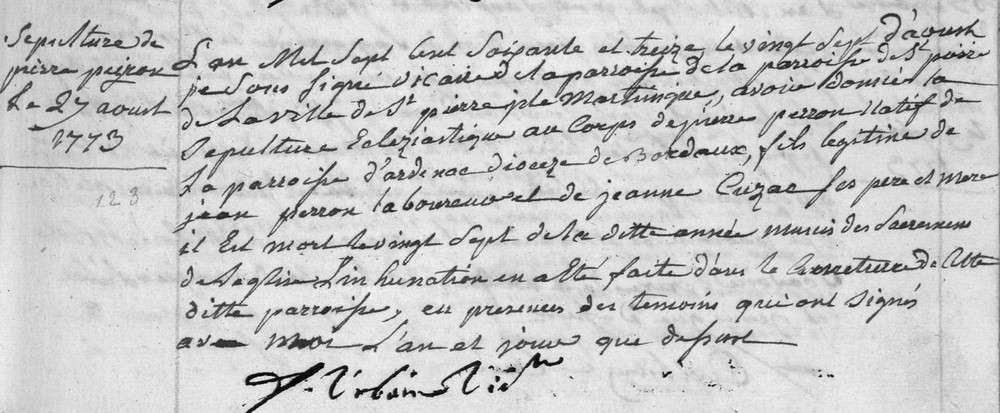 Sepulture de
pierre peiron
Le 27 aoust
1773
123
L'an Mil sept Cent soixante et treize, le vingt sept d'aoust
je sous signé vicaire de la parroisse de la parroisse de St pierre
de la ville de St pierre isle Martinique, avoir donné la
sepulture Ecleziastique au Corps de pierre perron natif de
La parroisse d'ardenac dioceze de Bordaux, fils legitime de
jean perron laboureur et de jeanne Cuzac ses pere et mere
il Est mort le vingt sept de la ditte année munis des sacremens
de leglise L'inhumation en a Eté faite dans le Cimetiere de Cette
ditte parroisse, en presences des temoins qui ont signés
avec moi L'an et jour que dessus